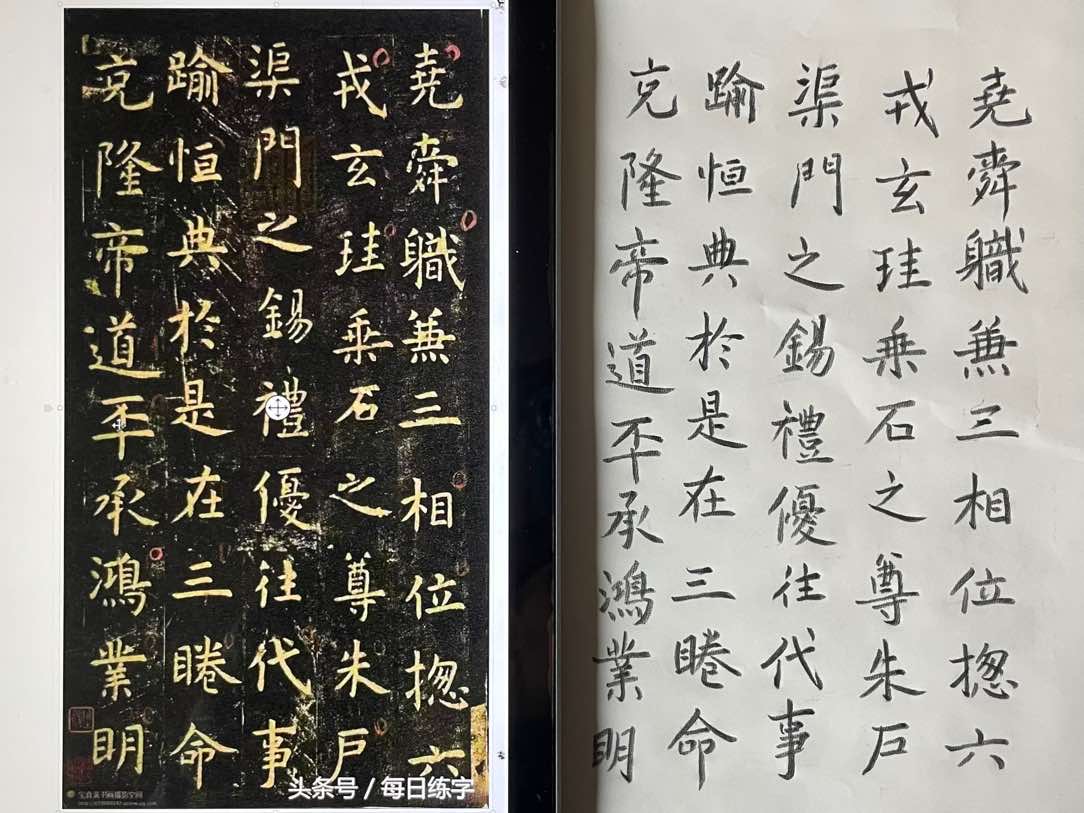 堯舜職兼三相位揔六
戎玄珪乘石之尊朱戶
渠門之錫禮優往代事
踰恒典於是在三睠命
克隆帝道丕承鴻業明
堯舜職兼三相位揔六
戎玄珪乘石之尊朱戶
渠門之錫禮優往代事
踰恒典於是在三睠命
克隆帝道丕承鴻業明
头条号 / 每日练字